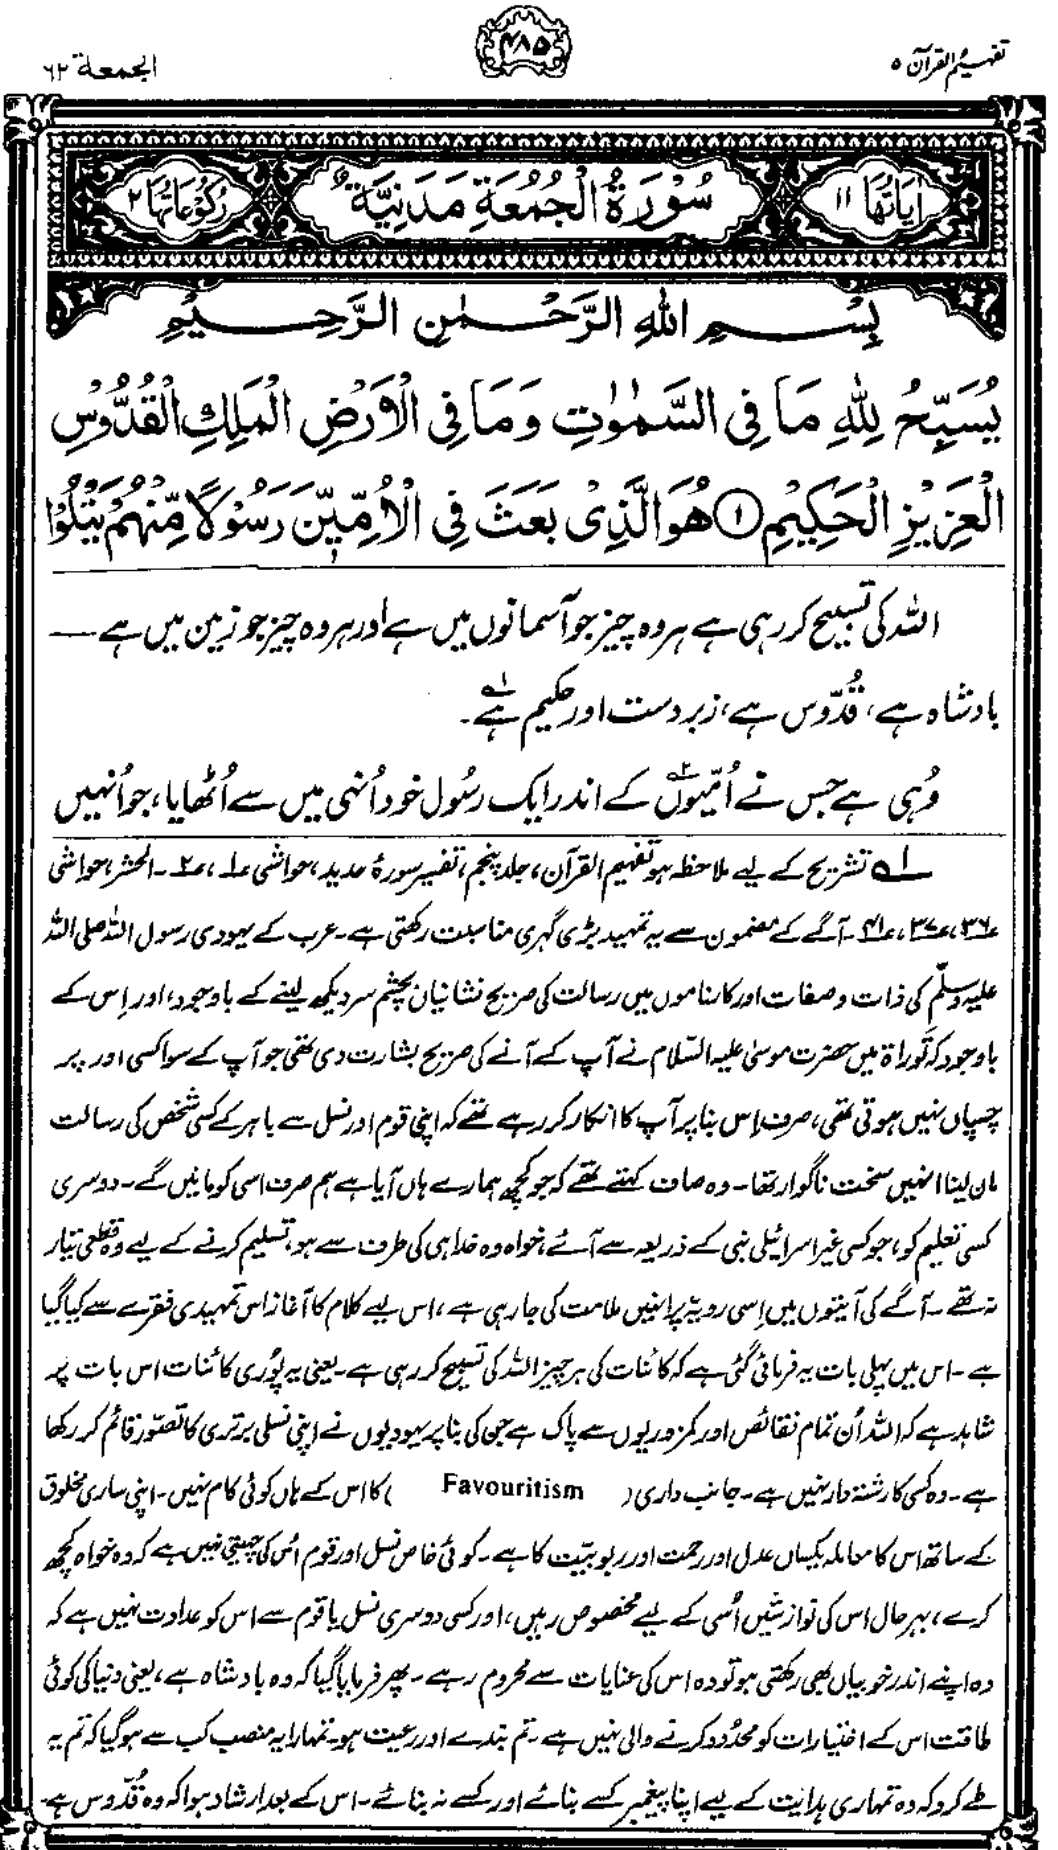 تفہیم القرآن ۵
۴۸۵
الجمعة ۶۲
اٰیَاتُهَا ۱۱
سُوْرَةُ الْجُمُعَةِ مَدَنِیَّةٌ
رُكُوْعَاتُهَا ۲
بِسْمِ اللّٰهِ الرَّحْمٰنِ الرَّحِیْمِ
یُسَبِّحُ لِلّٰهِ مَا فِی السَّمٰوٰتِ وَمَا فِی الْاَرْضِ الْمَلِكِ الْقُدُّوْسِ
الْعَزِیْزِ الْحَكِیْمِ ۱ هُوَ الَّذِیْ بَعَثَ فِی الْاُمِّیّٖنَ رَسُوْلًا مِّنْهُمْ یَتْلُوْا
اللہ کی تسبیح کر رہی ہے ہر وہ چیز جو آسمانوں میں ہے اور ہر وہ چیز جو زمین میں ہے ——
بادشاہ ہے، قُدّوس ہے، زبردست اور حکیم ہے۱۔
وُہی ہے جس نے اُمّیوں۲ کے اندر ایک رسُول خود اُنہی میں سے اُٹھایا، جو اُنہیں
۱ تشریح کے لیے ملاحظہ ہو تفہیم القرآن، جلد پنجم، تفسیر سورۂ حدید، حواشی ۱، ۲۔ الحشر، حواشی
۳۶، ۳۷، ۴۱۔ آگے کے مضمون سے یہ تمہید بڑی گہری مناسبت رکھتی ہے۔ عرب کے یہودی رسول اللہ صلی اللہ
علیہ وسلّم کی ذات و صفات اور کارناموں میں رسالت کی صریح نشانیاں بچشم سر دیکھ لینے کے باوجود، اور اِس کے
باوجود کہ تَوراۃ میں حضرت موسیٰ علیہ السّلام نے آپ کے آنے کی صریح بشارت دی تھی جو آپ کے سوا کسی اور پر
چسپاں نہیں ہوتی تھی، صرف اِس بنا پر آپ کا انکار کر رہے تھے کہ اپنی قوم اور نسل سے باہر کے کسی شخص کی رسالت
مان لینا انہیں سخت ناگوار تھا۔ وہ صاف کہتے تھے کہ جو کچھ ہمارے ہاں آیا ہے ہم صرف اسی کو مانیں گے۔ دوسری
کسی تعلیم کو، جو کسی غیر اسرائیلی نبی کے ذریعہ سے آئے، خواہ وہ خدا ہی کی طرف سے ہو، تسلیم کرنے کے لیے وہ قطعی تیار
نہ تھے۔ آگے کی آیتوں میں اِسی رویّہ پر انہیں ملامت کی جا رہی ہے، اس لیے کلام کا آغاز اس تمہیدی فقرے سے کیا گیا
ہے۔ اس میں پہلی بات یہ فرمائی گئی ہے کہ کائنات کی ہر چیز اللہ کی تسبیح کر رہی ہے۔ یعنی یہ پُوری کائنات اس بات پر
شاہد ہے کہ اللہ اُن تمام نقائص اور کمزوریوں سے پاک ہے جن کی بنا پر یہودیوں نے اپنی نسلی برتری کا تصّور قائم کر رکھا
ہے۔ وہ کسی کا رشتہ دار نہیں ہے۔ جانب داری ( Favouritism ) کا اس کے ہاں کوئی کام نہیں۔ اپنی ساری مخلوق
کے ساتھ اس کا معاملہ یکساں عدل اور رحمت اور ربوبیّت کا ہے۔ کوئی خاص نسل اور قوم اُس کی چہیتی نہیں ہے کہ وہ خواہ کچھ
کرے، بہر حال اس کی نوازشیں اُسی کے لیے مخصوص رہیں، اور کسی دوسری نسل یا قوم سے اس کو عداوت نہیں ہے کہ
وہ اپنے اندر خوبیاں بھی رکھتی ہو تو وہ اس کی عنایات سے محروم رہے۔ پھر فرمایا گیا کہ وہ بادشاہ ہے، یعنی دنیا کی کوئی
طاقت اس کے اختیارات کو محدُود کرنے والی نہیں ہے۔ تم بندے اور رعیت ہو۔ تمہارا یہ منصب کب سے ہو گیا کہ تم یہ
طے کرو کہ وہ تمہاری ہدایت کے لیے اپنا پیغمبر کسے بنائے اور کسے نہ بنائے۔ اس کے بعد ارشاد ہوا کہ وہ قُدّوس ہے۔